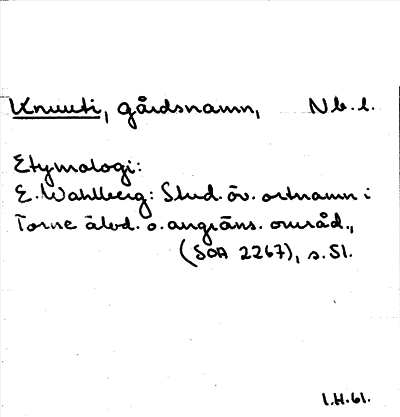 Knuuti, gårdsnamn, Nb.l.
Etymologi:
E. Wahlberg: Stud. öv. ortnamn i
Torne älvd. o. angräns. områd.,
(SOA 2267), s. 51.
I.H.61.